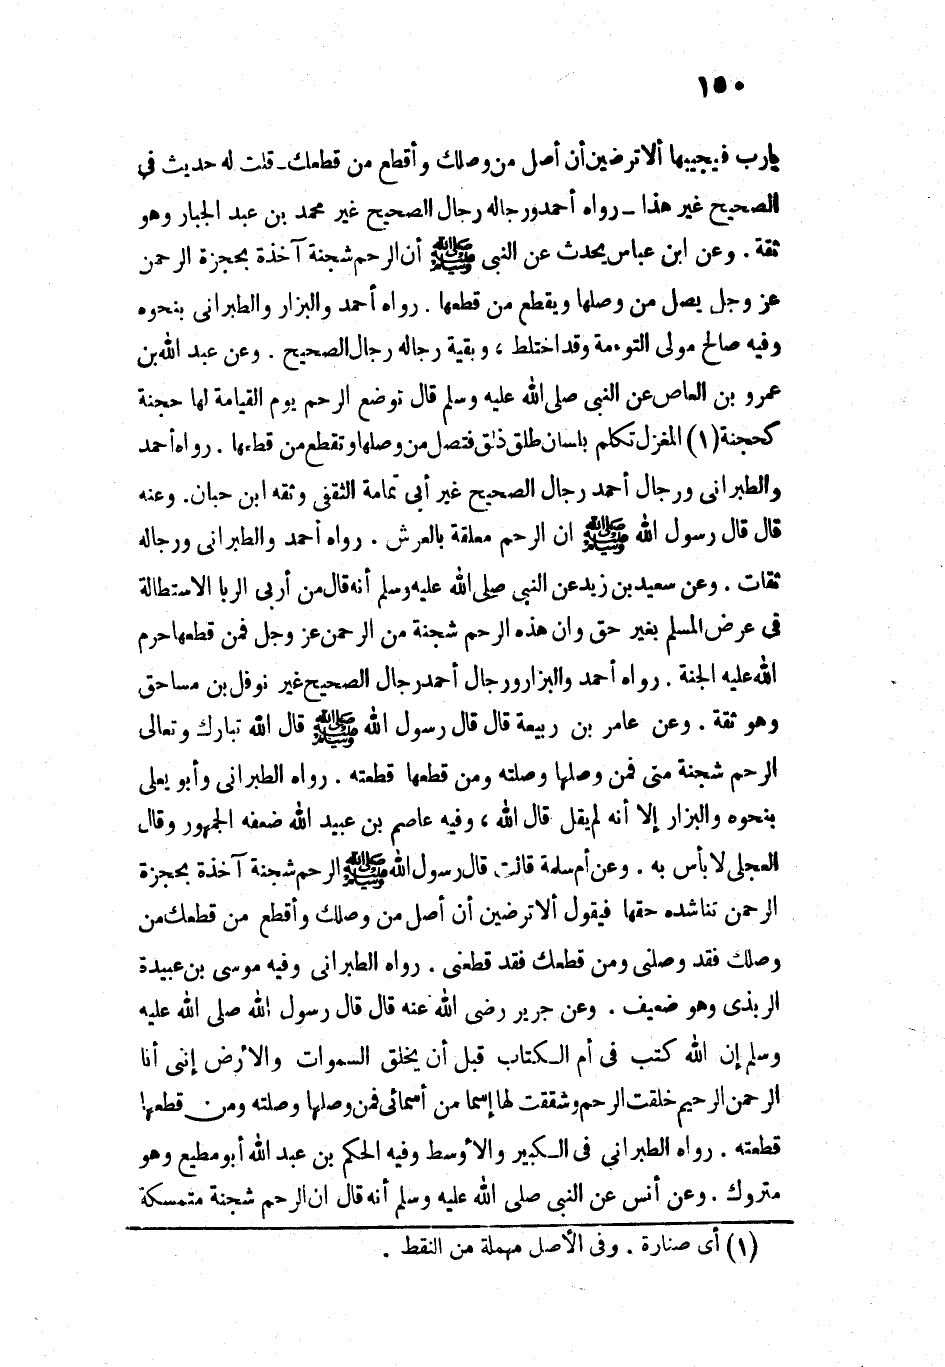 ١٥٠
يارب فيجيبها ألا ترضين أن أصل من وصلك وأقطع من قطعك ـ قلت له حديث في
الصحيح غير هذا ـ رواه أحمد ورجاله رجال الصحيح غير محمد بن عبد الجبار وهو
ثقة . وعن ابن عباس يحدث عن النبى ﷺ أن الرحم شجنة آخذة بحجزة الرحمن
عز وجل يصل من وصلها ويقطع من قطعها . رواه أحمد والبزار والطبرانى بنحوه
وفيه صالح مولى التوءمة وقد اختلط ، وبقية رجاله رجال الصحيح . وعن عبد الله بن
عمرو بن العاص عن النبى صلى الله عليه وسلم قال توضع الرحم يوم القيامة لها حجنة
كحجنة (١) المغزل تكلم بلسان طلق ذلق فتصل من وصلها وتقطع من قطعها . رواه أحمد
والطبرانى ورجال أحمد رجال الصحيح غير أبي ثمامة الثقفى وثقه ابن حبان. وعنه
قال قال رسول الله ﷺ ان الرحم معلقة بالعرش . رواه أحمد والطبرانى ورجاله
ثقات . وعن سعيد بن زيد عن النبى صلى الله عليه وسلم أنه قال من أربى الربا الاستطالة
فى عرض المسلم بغير حق وان هذه الرحم شجنة من الرحمن عز وجل فمن قطعها حرم
الله عليه الجنة . رواه أحمد والبزار ورجال أحمد رجال الصحيح غير نوفل بن مساحق
وهو ثقة . وعن عامر بن ربيعة قال قال رسول الله ﷺ قال الله تبارك وتعالى
الرحم شجنة منى فمن وصلها وصلته ومن قطعها قطعته . رواه الطبرانى وأبو يعلى
بنحوه والبزار إلا أنه لم يقل قال الله ، وفيه عاصم بن عبيد الله ضعفه الجمهور وقال
العجلى لا بأس به . وعن أم سلمة قالت قال رسول الله ﷺ الرحم شجنة آخذة بحجزة
الرحمن تناشده حقها فيقول ألا ترضين أن أصل من وصلك وأقطع من قطعك من
وصلك فقد وصلنى ومن قطعك فقد قطعنى . رواه الطبرانى وفيه موسى بن عبيدة
الربذى وهو ضعيف . وعن جرير رضى الله عنه قال قال رسول الله صلى الله عليه
وسلم إن الله كتب فى أم الكتاب قبل أن يخلق السموات والأرض إننى أنا
الرحمن الرحيم خلقت الرحم وشققت لها إسما من أسمائى فمن وصلها وصلته ومن قطعها
قطعته . رواه الطبراني فى الكبير والأوسط وفيه الحكم بن عبد الله أبو مطيع وهو
متروك . وعن أنس عن النبى صلى الله عليه وسلم أنه قال ان الرحم شجنة متمسكة
(١) أى صنارة . وفى الأصل مهملة من النقط .